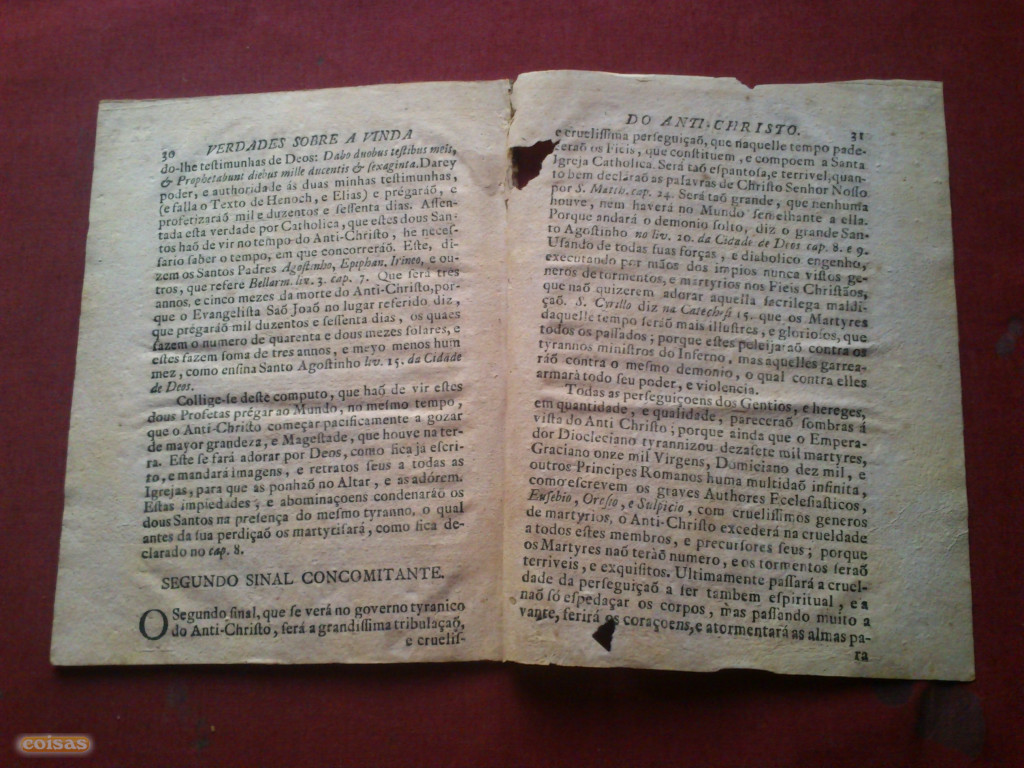 30 VERDADES SOBRE A VINDA
do-lhe teſtimunhas de Deos: Dabo duobus teſtibus meis,
& Prophetabunt diebus mille ducentis & ſexaginta. Darey
poder, e authoridade ás duas minhas teſtimunhas,
(e falla o Texto de Henoch, e Elias) e prégaráõ, e
profetizaráõ mil e duzentos e ſeſſenta dias. Aſſen-
tada eſta verdade por Catholica, que eſtes dous San-
tos haõ de vir no tempo do Anti-Chriſto, he neceſ-
ſario ſaber o tempo, em que concorreráõ. Eſte, di-
zem os Santos Padres Agoſtinho, Epiphan. Irineo, e ou-
tros, que refere Bellarm. liv. 3. cap. 7. Que ſerá tres
annos, e cinco mezes da morte do Anti-Chriſto, por-
que o Evangeliſta Saõ Joaõ no lugar referido diz,
que prégaráõ mil duzentos e ſeſſenta dias, os quaes
fazem o numero de quarenta e dous mezes ſolares, e
eſtes fazem ſoma de tres annos, e meyo menos hum
mez, como enſina Santo Agoſtinho liv. 15. da Cidade
de Deos.
Collige-ſe deſte computo, que haõ de vir eſtes
dous Profetas prégar ao Mundo, no meſmo tempo,
que o Anti-Chriſto começar pacificamente a gozar
de mayor grandeza, e Mageſtade, que houve na ter-
ra. Eſte ſe fará adorar por Deos, como fica já eſcri-
to, e mandará imagens, e retratos ſeus a todas as
Igrejas, para que as ponhaõ no Altar, e as adórem.
Eſtas impiedades, e abominaçoens condenaráõ os
dous Santos na preſença do meſmo tyranno, o qual
antes da ſua perdiçaõ os martyriſará, como fica de-
clarado no cap. 8.
SEGUNDO SINAL CONCOMITANTE.
O Segundo ſinal, que ſe verá no governo tyranico
do Anti-Chriſto, ſerá a grandiſſima tribulaçaõ,
e crueliſ-
DO ANTI-CHRISTO. 31
e crueliſſima perſeguiçaõ, que naquelle tempo pade-
ceráõ os Fieis, que conſtituem, e compoem a Santa
Igreja Catholica. Será taõ eſpantoſa, e terrivel, quan-
to bem declaraõ as palavras de Chriſto Senhor Noſſo
por S. Matth. cap. 24. Será taõ grande, que nenhuma
houve, nem haverá no Mundo ſemelhante a ella.
Porque andará o demonio ſolto, diz o grande San-
to Agoſtinho no liv. 20. da Cidade de Deos cap. 8. e 9.
Uſando de todas ſuas forças, e diabolico engenho,
executando por mãos dos impios nunca viſtos ge-
neros de tormentos, e martyrios nos Fieis Chriſtãos,
que naõ quizerem adorar aquella ſacrilega maldi-
çaõ. S. Cyrillo diz na Catecheſi 15. que os Martyres
daquelle tempo ſeráõ mais illuſtres, e glorioſos, que
todos os paſſados; porque eſtes peleijaráõ contra os
tyrannos miniſtros do Inferno, mas aquelles garrea-
ráõ contra o meſmo demonio, o qual contra elles
armará todo ſeu poder, e violencia.
Todas as perſeguiçoens dos Gentios, e hereges,
em quantidade, e qualidade, pareceráõ ſombras á
viſta do Anti Chriſto; porque ainda que o Empera-
dor Diocleciano tyrannizou dezaſete mil martyres,
Graciano onze mil Virgens, Domiciano dez mil, e
outros Principes Romanos huma multidaõ infinita,
como eſcrevem os graves Authores Eccleſiaſticos,
Euſebio, Oroſio, e Sulpicio, com crueliſſimos generos
de martyrios, o Anti-Chriſto excederá na crueldade
a todos eſtes membros, e precurſores ſeus; porque
os Martyres naõ teráõ numero, e os tormentos ſeráõ
terriveis, e exquiſitos. Ultimamente paſſará a cruel-
dade da perſeguiçaõ a ſer tambem eſpiritual, e a
naõ ſó eſpedaçar os corpos, mas paſſando muito a
vante, ferirá os coraçoens, e atormentará as almas pa-
ra
coisas